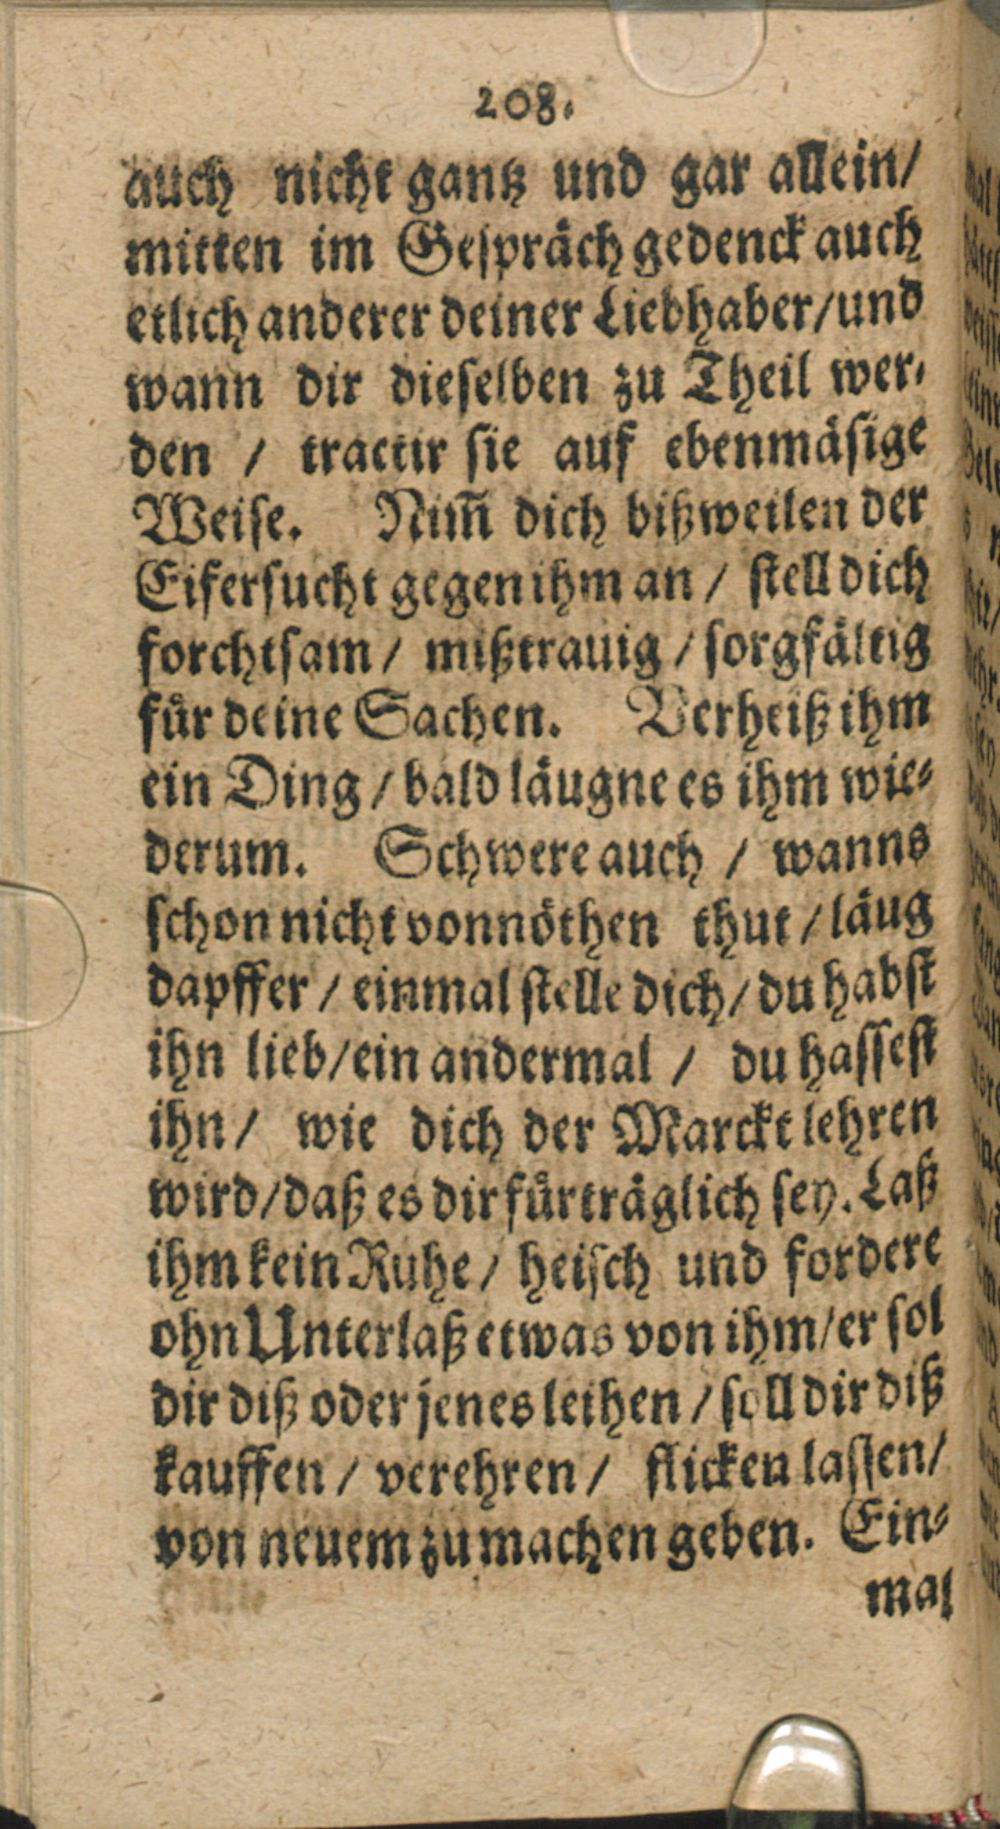 208.
auch nicht gantz und gar allein/
mitten im Gespräch gedenck auch
etlich anderer deiner Liebhaber/und
wann dir dieselben zu Theil wer-
den / tractir sie auf ebenmäsige
Weise. Nim̃ dich bißweilen der
Eifersucht gegen ihm an / stell dich
forchtsam / mißtrauig / sorgfältig
für deine Sachen. Verheiß ihm
ein Ding / bald läugne es ihm wie-
derum. Schwere auch / wanns
schon nicht vonnöthen thut / läug
dapffer / einmal stelle dich / du habst
ihn lieb/ein andermal / du hassest
ihn / wie dich der Marckt lehren
wird/daß es dir fürträglich sey. Laß
ihm kein Ruhe / heisch und fordere
ohn Unterlaß etwas von ihm/er sol
dir diß oder jenes leihen / soll dir diß
kauffen / verehren / flicken lassen/
von neuem zu machen geben. Ein-
mal